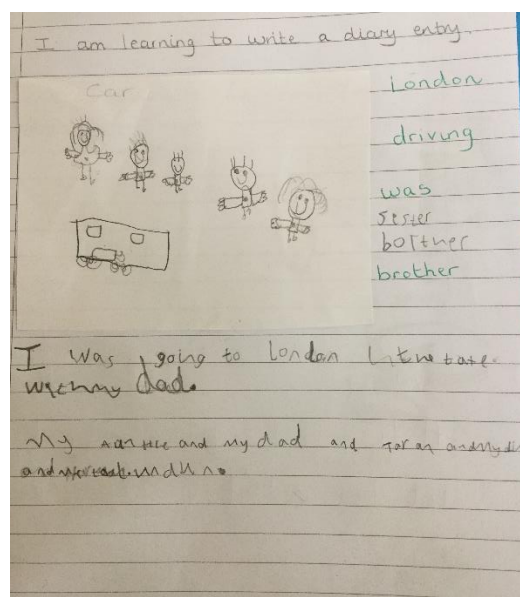 I am learning to write a diary entry.
Car
London
driving
was
sister
bortner
brother
I was going to London
with my dad.
My and my dad and and my
and